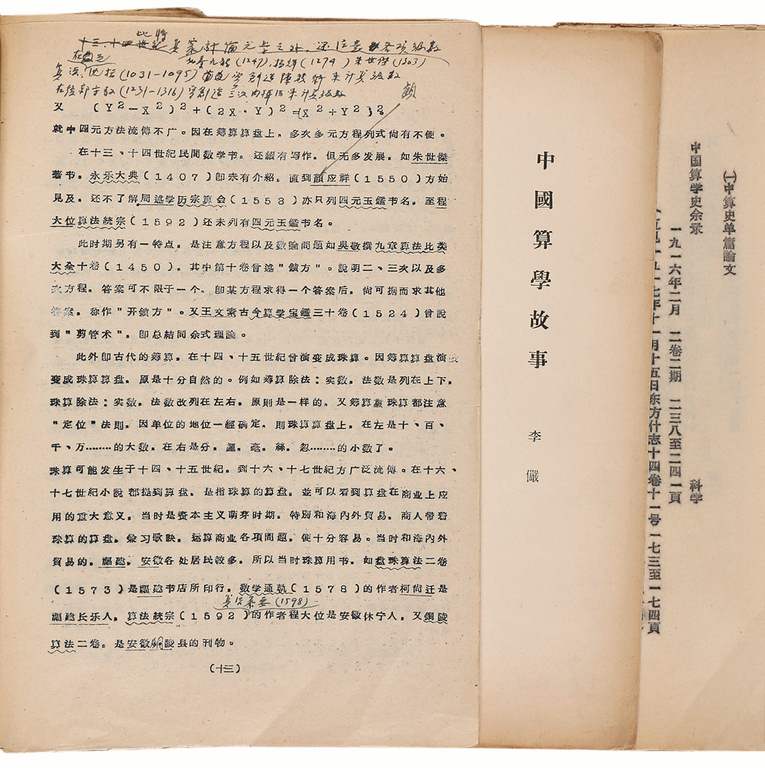 秦九韶(1247), 杨辉(1274) 朱世傑(1303)
又 (Y²－X²)²＋(2X・Y)²＝(X²＋Y²)²
就中四元方法流傳不广。因在筹算算盘上，多次多元方程列式尚有不便。
在十三、十四世紀民間数学书，还續有写作，但无多发展。如朱世傑
著书，永乐大典(1407)即未有介紹，直到顧应祥(1550)方始
見及，还不了解周述学历宗算会(1553)亦只列四元玉鑑书名。至程
大位算法統宗(1592)还未列有四元玉鑑书名。
此时期另有一特点，是注意方程以及数論問題如吳敬撰九章算法比类
大全十卷(1450)，其中第十卷曾述“鎖方”。說明二、三次以及多
次方程，答案可不限于一个。即某方程求得一个答案后，尚可据而求其他
答案，称作“开鎖方”。又王文素古今算学宝鑑三十卷(1524)曾說
到“剪管术”，即总結同余式理論。
此外即古代的筹算，在十四、十五世紀曾演变成珠算。因筹算算盘演
变成珠算算盘，原是十分自然的。例如筹算除法：实数，法数是列在上下。
珠算除法：实数，法数改列在左右，原則是一样的。又筹算盘珠算都注意
“定位”法則。因单位的地位一經确定，則珠算算盘上，在左是十、百、
千、万………的大数，在右是分，厘，毫，絲，忽………的小数了。
珠算可能发生于十四、十五世紀，到十六、十七世紀方广泛流傳。在十六、
十七世紀小說都提到算盘，是指珠算的算盘。並可以看到算盘在商业上应
用的重大意义，当时是资本主义萌芽时期，特別和海內外贸易，商人带着
珠算的算盘，兼习歌訣，运算商业各項問題，便十分容易。当时和海內外
貿易的，福建，安徽各处居民較多，所以当时珠算用书，如盘珠算法二卷
(1573)是福建书店所印行，数学通軌(1578)的作者柯尚迁是
算法纂要(1598)
福建长乐人，算法統宗(1592)的作者程大位是安徽休宁人，又銅陵
算法二卷，是安徽縣的刊物。
(十三)
中國算學故事
李儼
(一)中算史单篇論文
中国算学史余录
一九一六年二月 二卷二期 二三八至二四一頁 科学
一九一七年十一月十五日东方什志十四卷十一号 一七三至一七四頁